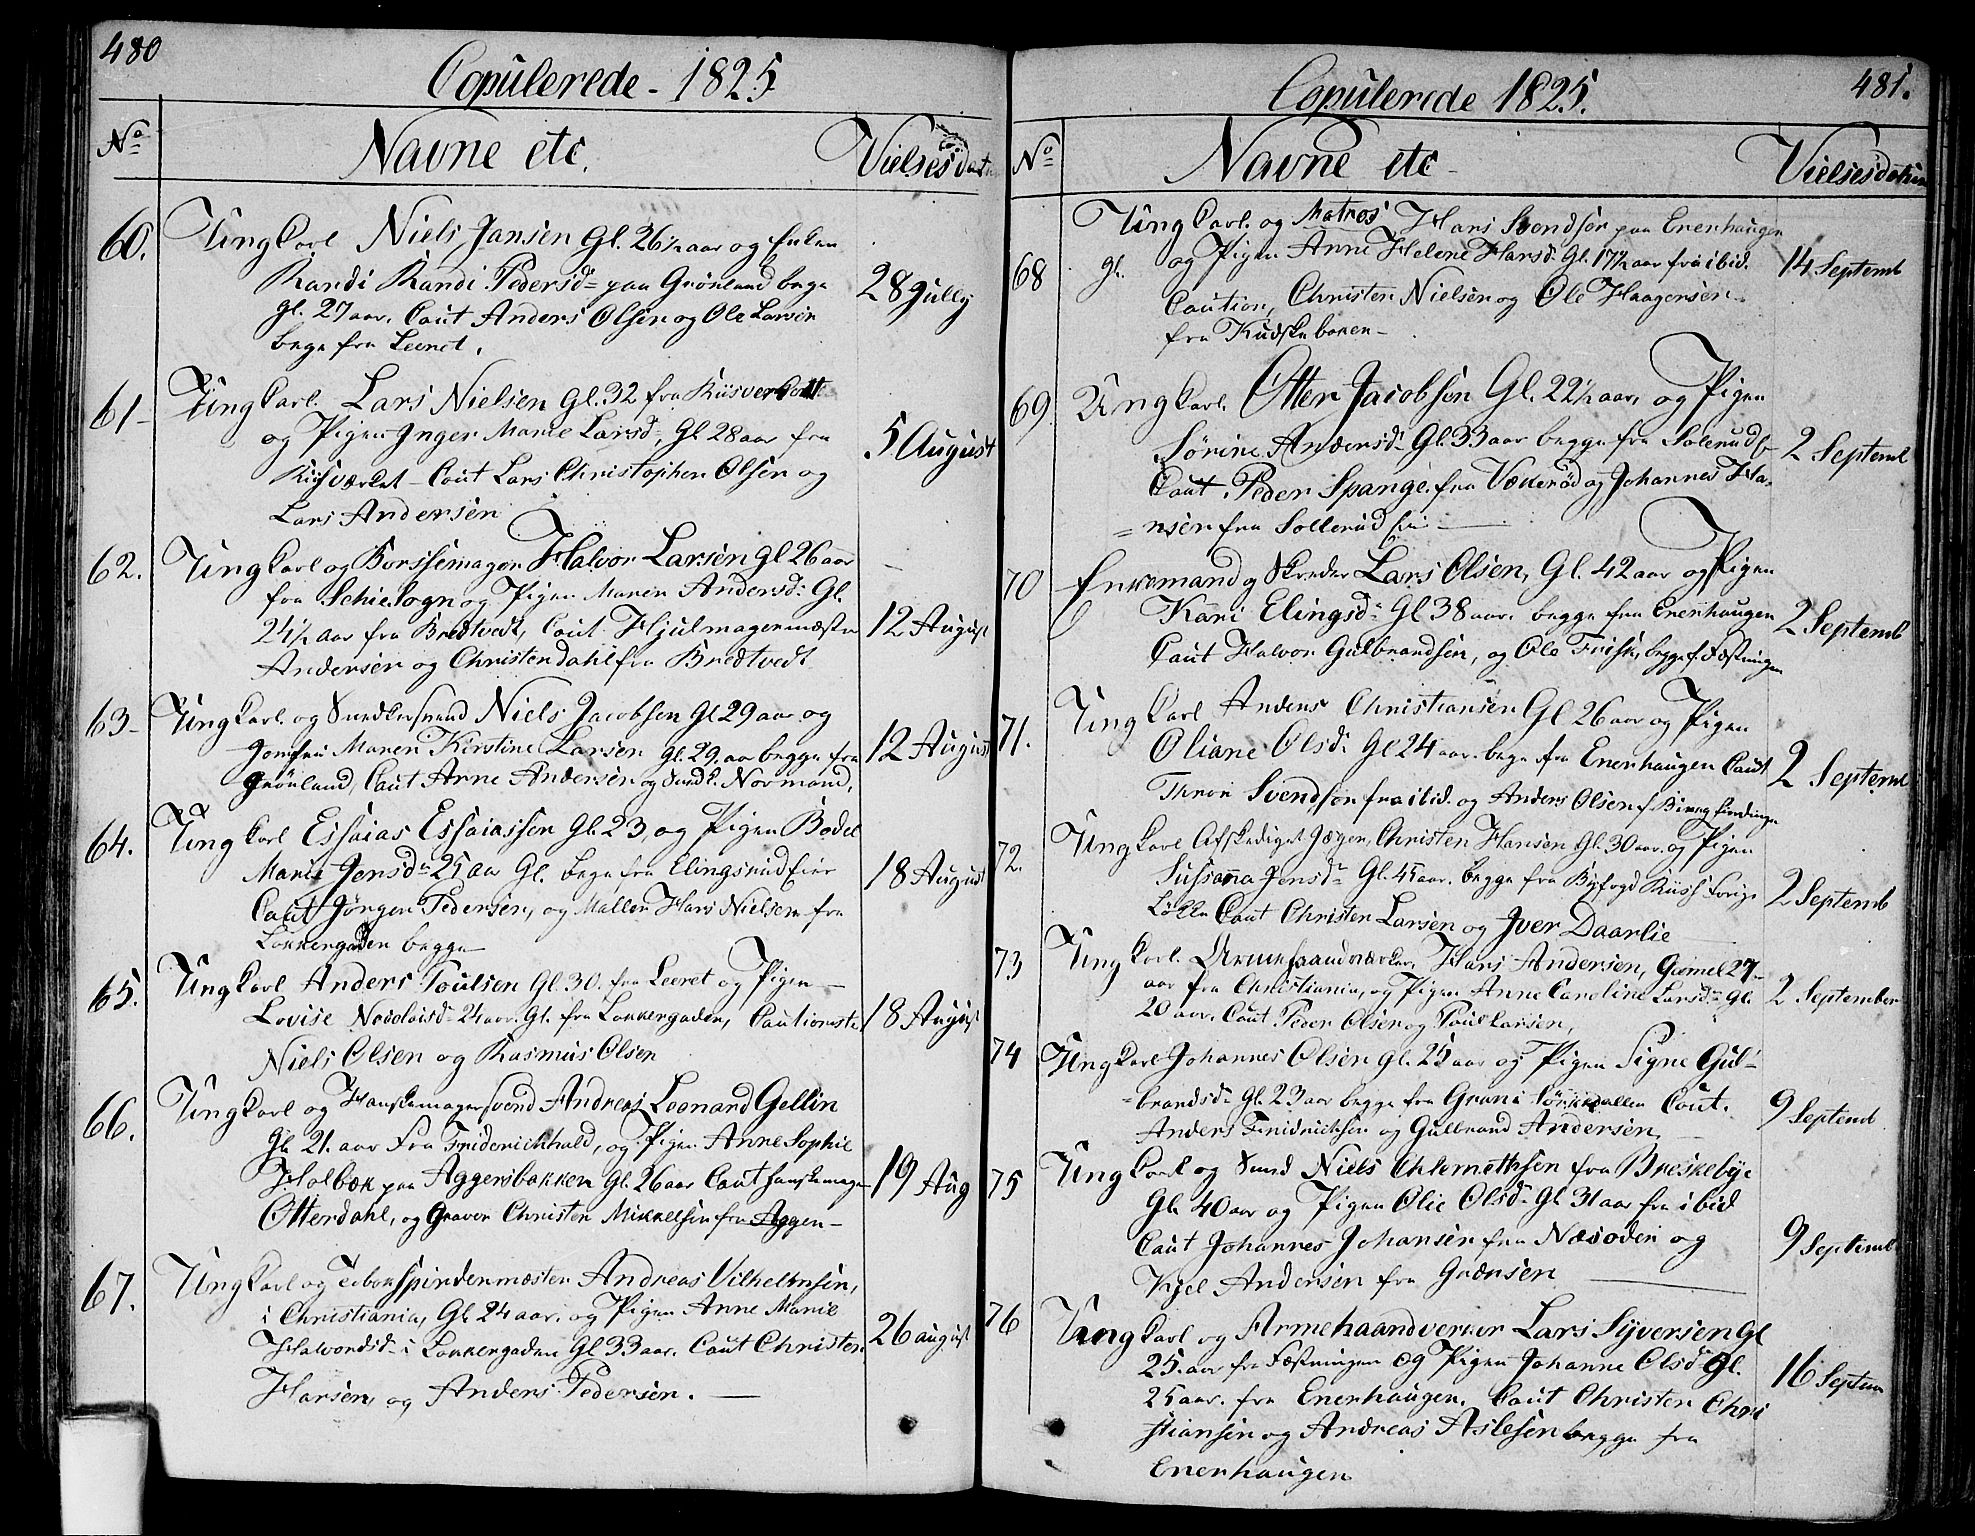 480
Copulerede - 1825
No
Navne etc.
Vielsesdat
60.
Ungkarl Niels Jansen Gl. 26½ aar og Enken
Randi Randi Pedersd: paa Grønland bege
28 Jully
gl. 27 aar. Caut Anders Olsen og Ole Larsen
bege fra Leeret.
61-
Ungkarl. Lars Nielsen Gl. 32 fra
og Pigen Inger Marie Larsd:, Gl. 28 aar fra
5 August
Caut Lars Christopher Olsen og
Lars Andersen
62.
Ungkarl og Borssemager Halvor Larsen gl 26 aar
fra Schie Sogn og Pigen Maren Andersd: Gl.
24½ aar fra Bredtvedt, Caut. Hjulmagermæster
12 August
Andersen og Christen Dahl fra Bredtvedt
63-
Ungkarl. og Snedkersvend Niels Jacobsen Gl 29 aar og
Jomfru Maren Kirstine Larsen Gl. 29. aar begge fra
12 August
Grönland, Caut Arne Andersen og Snedk. Normand.
64.
Ungkarl Essaias Essaiassen Gl. 23, og Pigen Bodel
Marie Jensd: 25 aar Gl. bege fra Elingsrud Eier
18 August
Caut Jörgen Pedersen, og Møller Hans Nielsen fra
Lakkergaden begge
65.
Ungkarl Anders Poulsen Gl. 30. fra Leeret og Pigen
Lovise 24 aar. Gl. fra Lakkergaden, Cautioniste
18 August
Niels Olsen og Rasmus Olsen
66.
Ungkarl og Hanskemagersvend Andreas Leonard Gellin
Gl. 21. aar fra Friderichhald, og Pigen Anne Sophie
Holbæk paa Aggersbakken Gl. 26 aar Caut hanskemager
19 Aug
Otterdahl, og Graver Christen Mikkelsen fra Agger-
67.
Ungkarl og Andreas Vilhelmsen,
i Christiania, Gl. 24 aar. og Pigen Anne Marie
Halvorsd: i Lakkergaden Gl 33 aar. Caut Christen
26 august
Hansen og Anders Pedersen.
481.
Copulerede 1825.
No
Navne etc
Vielsesdatum
68
Ungkarl. og Matros Hans Svendsen paa Enerhaugen
gl. og Pigen Anne Helene Hansd: Gl. 17½ aar fra ibid.
14 Septemb
Caution, Christen Nielsen og Ole Haagensen
fra Kudskebakken
69
Ungkarl. Otter Jacobsen Gl. 22½ aar, og Pigen
Sörine Andersd: Gl. 33 aar begge fra Solerud
2 Septemb
Caut. Peder Spange fra Vækkerød og Johannes Ha-
=nsen fra Sollerud Eie
70
Enkemand og Skreder Lars Olsen, Gl. 42 aar og Pigen
Kari Elingsd: Gl 38 aar. begge fra Enerhaugen
2 Septemb
Caut Halvor Gulbrandsen, og Ole Frisk, begge f. Fæstningen
71.
Ungkarl Anders Christiansen Gl 26 aar og Pigen
Oliane Olsd: Gl 24 aar. bege fra Enerhaugen Caut
2 Septemb
Svendsen fra ibid. og Anders Olsen f.
72.
Ungkarl Afskediget Jæger, Christen Hansen Gl. 30 aar. og Pigen
Sussanna Jensd: Gl. 45 aar. begge fra Byfogd
2 Septemb
Løkke Caut Christen Larsen og Iver Daarlie
73
Ungkarl. Hans Andersen, Gammel 27
aar fra Christiania, og Pigen Anne Caroline Larsd: Gl.
2 September
20 aar. Caut. Peder Olsen og Poul Larsen,
74
Ungkarl Johannes Olsen Gl. 25 aar og Pigen Signe Gul-
=brandsd: Gl. 23 aar begge fra Grani Sörkedallen Caut.
9 Septemb
Anders Fridrichsen og Gulbrand Andersen
75
Ungkarl og Smed Niels Chlemethsen fra Breskebye
Gl. 40 aar og Pigen Olie Olsd: Gl. 31 aar fra ibid
Caut Johannes Johansen fra Næsodden og
9 Septemb
Kjel Andersen fra Grænsen
76
Ungkarl og Armehaandverker Lars Syversen Gl
25. aar fra Fæstningen og Pigen Johanne Olsd: gl.
16 Septem
25 aar. fra Enerhaugen. Caut Christen Chri
stiansen og Andreas Aslesen begge fra
Enerhaugen